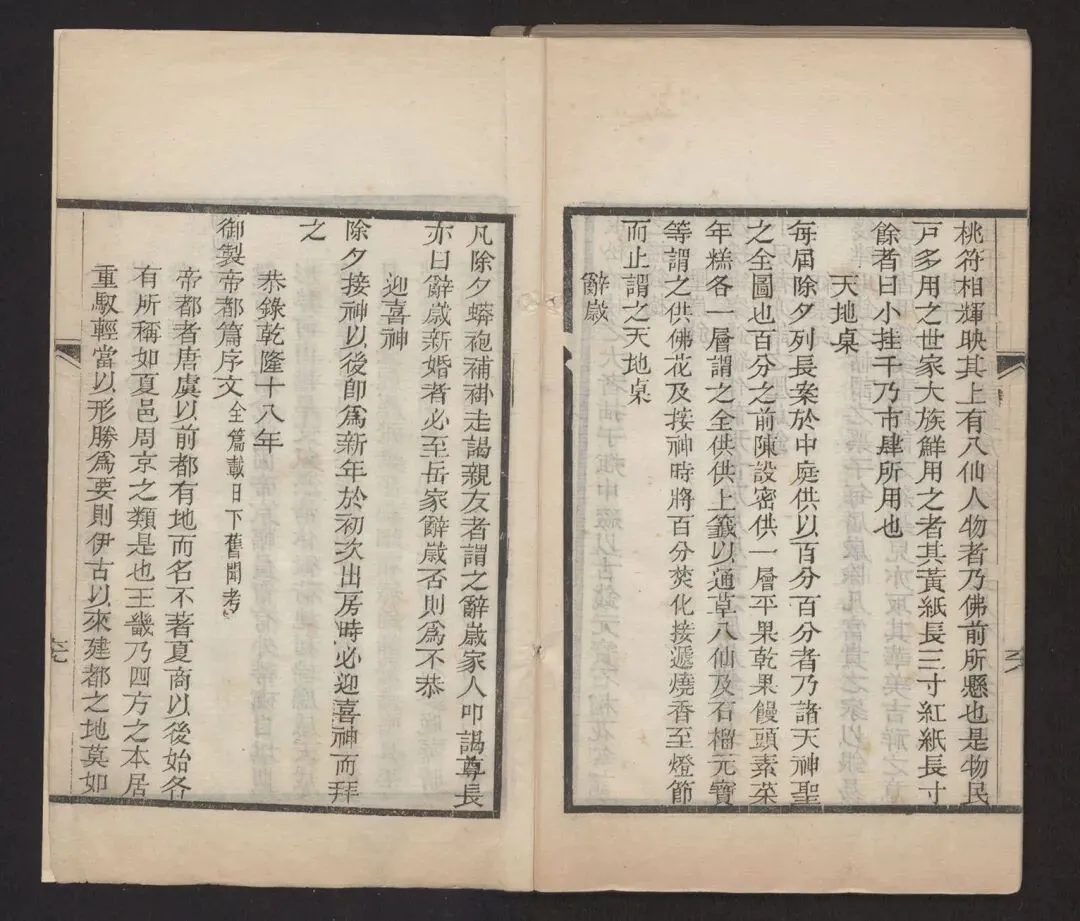 桃符相輝映其上有八仙人物者乃佛前所懸也是物民
戸多用之世家大族鮮用之者其黃紙長三寸紅紙長寸
餘者曰小挂千乃市肆所用也
天地桌
每屆除夕列長案於中庭供以百分百分者乃諸天神聖
之全圖也百分之前陳設密供一層平果乾果饅頭素菜
年糕各一層謂之全供供上籤以通草八仙及石榴元寶
等謂之供佛花及接神時將百分焚化接遞燒香至燈節
而止謂之天地桌
辭歲
凡除夕蟒袍補褂走謁親友者謂之辭歲家人叩謁尊長
亦曰辭歲新婚者必至岳家辭歲否則爲不恭
迎喜神
除夕接神以後卽爲新年於初次出房時必迎喜神而拜
之
恭錄乾隆十八年
御製帝都篇序文全篇載日下舊聞考
帝都者唐虞以前都有地而名不著夏商以後始各
有所稱如夏邑周京之類是也王畿乃四方之本居
重馭輕當以形勝爲要則伊古以來建都之地莫如